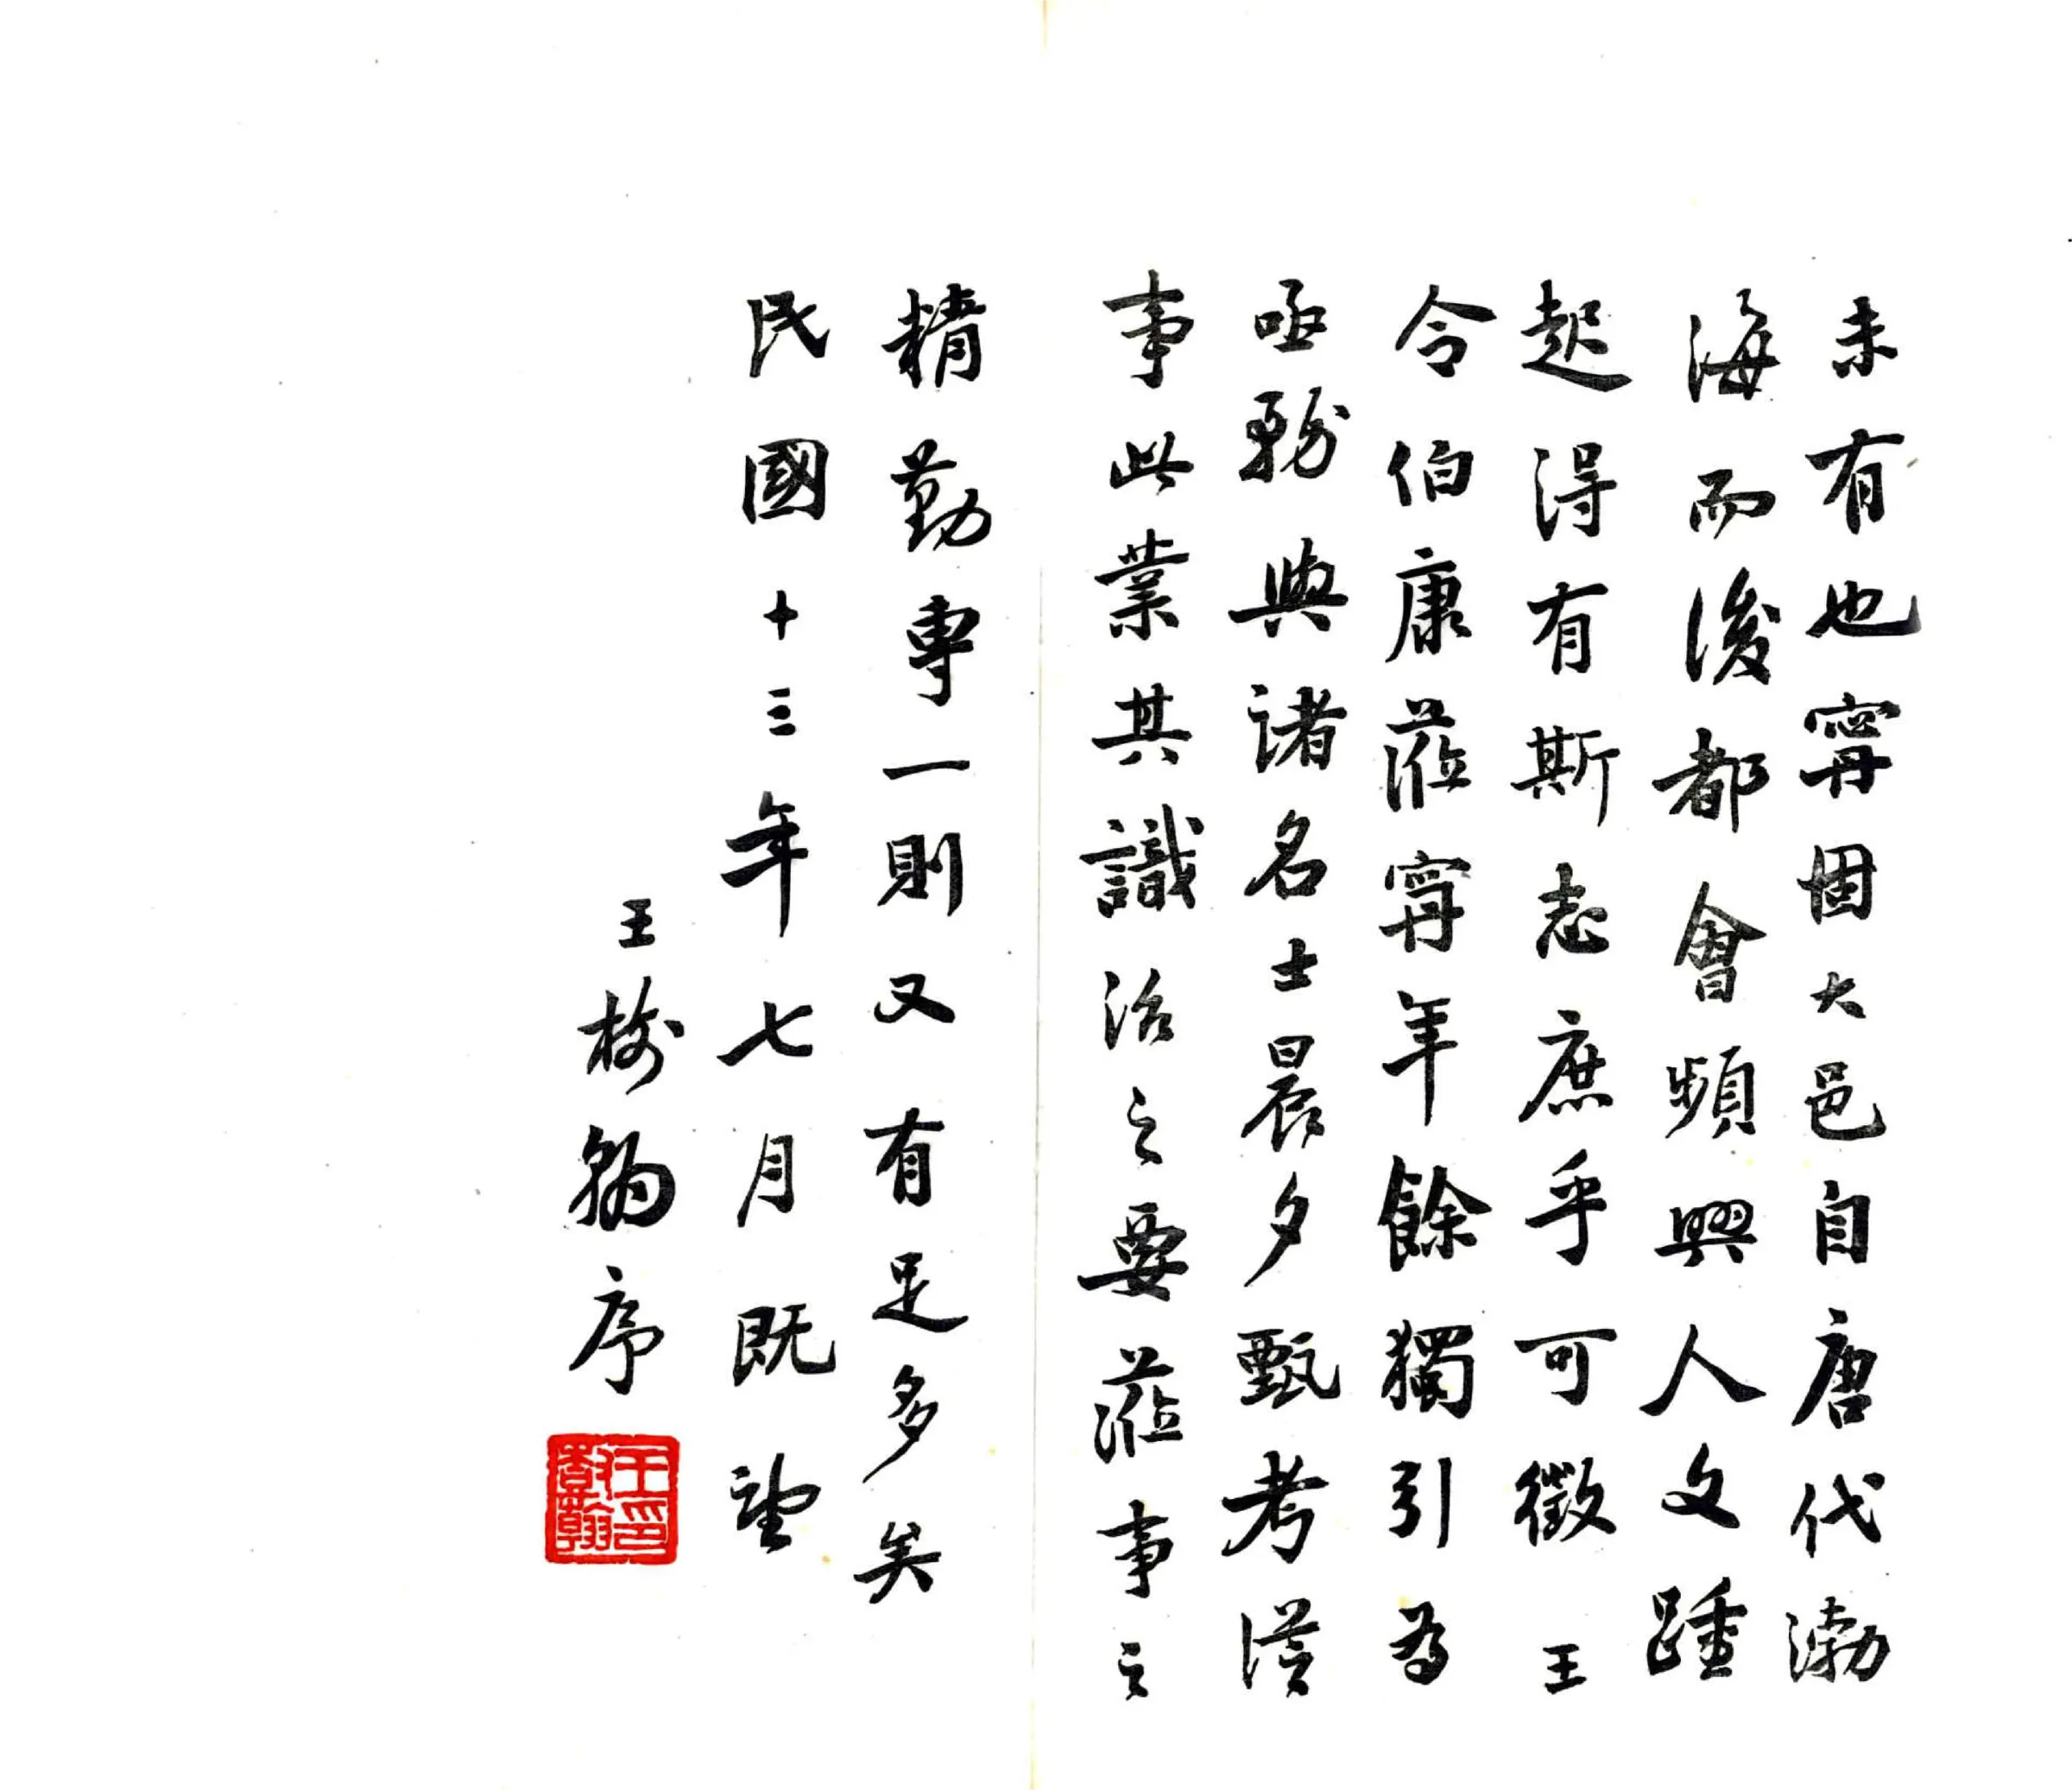 未有也寗固大邑自唐代渤
海而後都會頻興人文踵
起得有斯志庶乎可徵王
令伯康蒞寗年餘獨引為
亟務與諸名士晨夕甄考從
事此業其識治之要蒞事之
精勤專一則又有足多矣
民國十三年七月既望
王樹翰序
王印樹翰